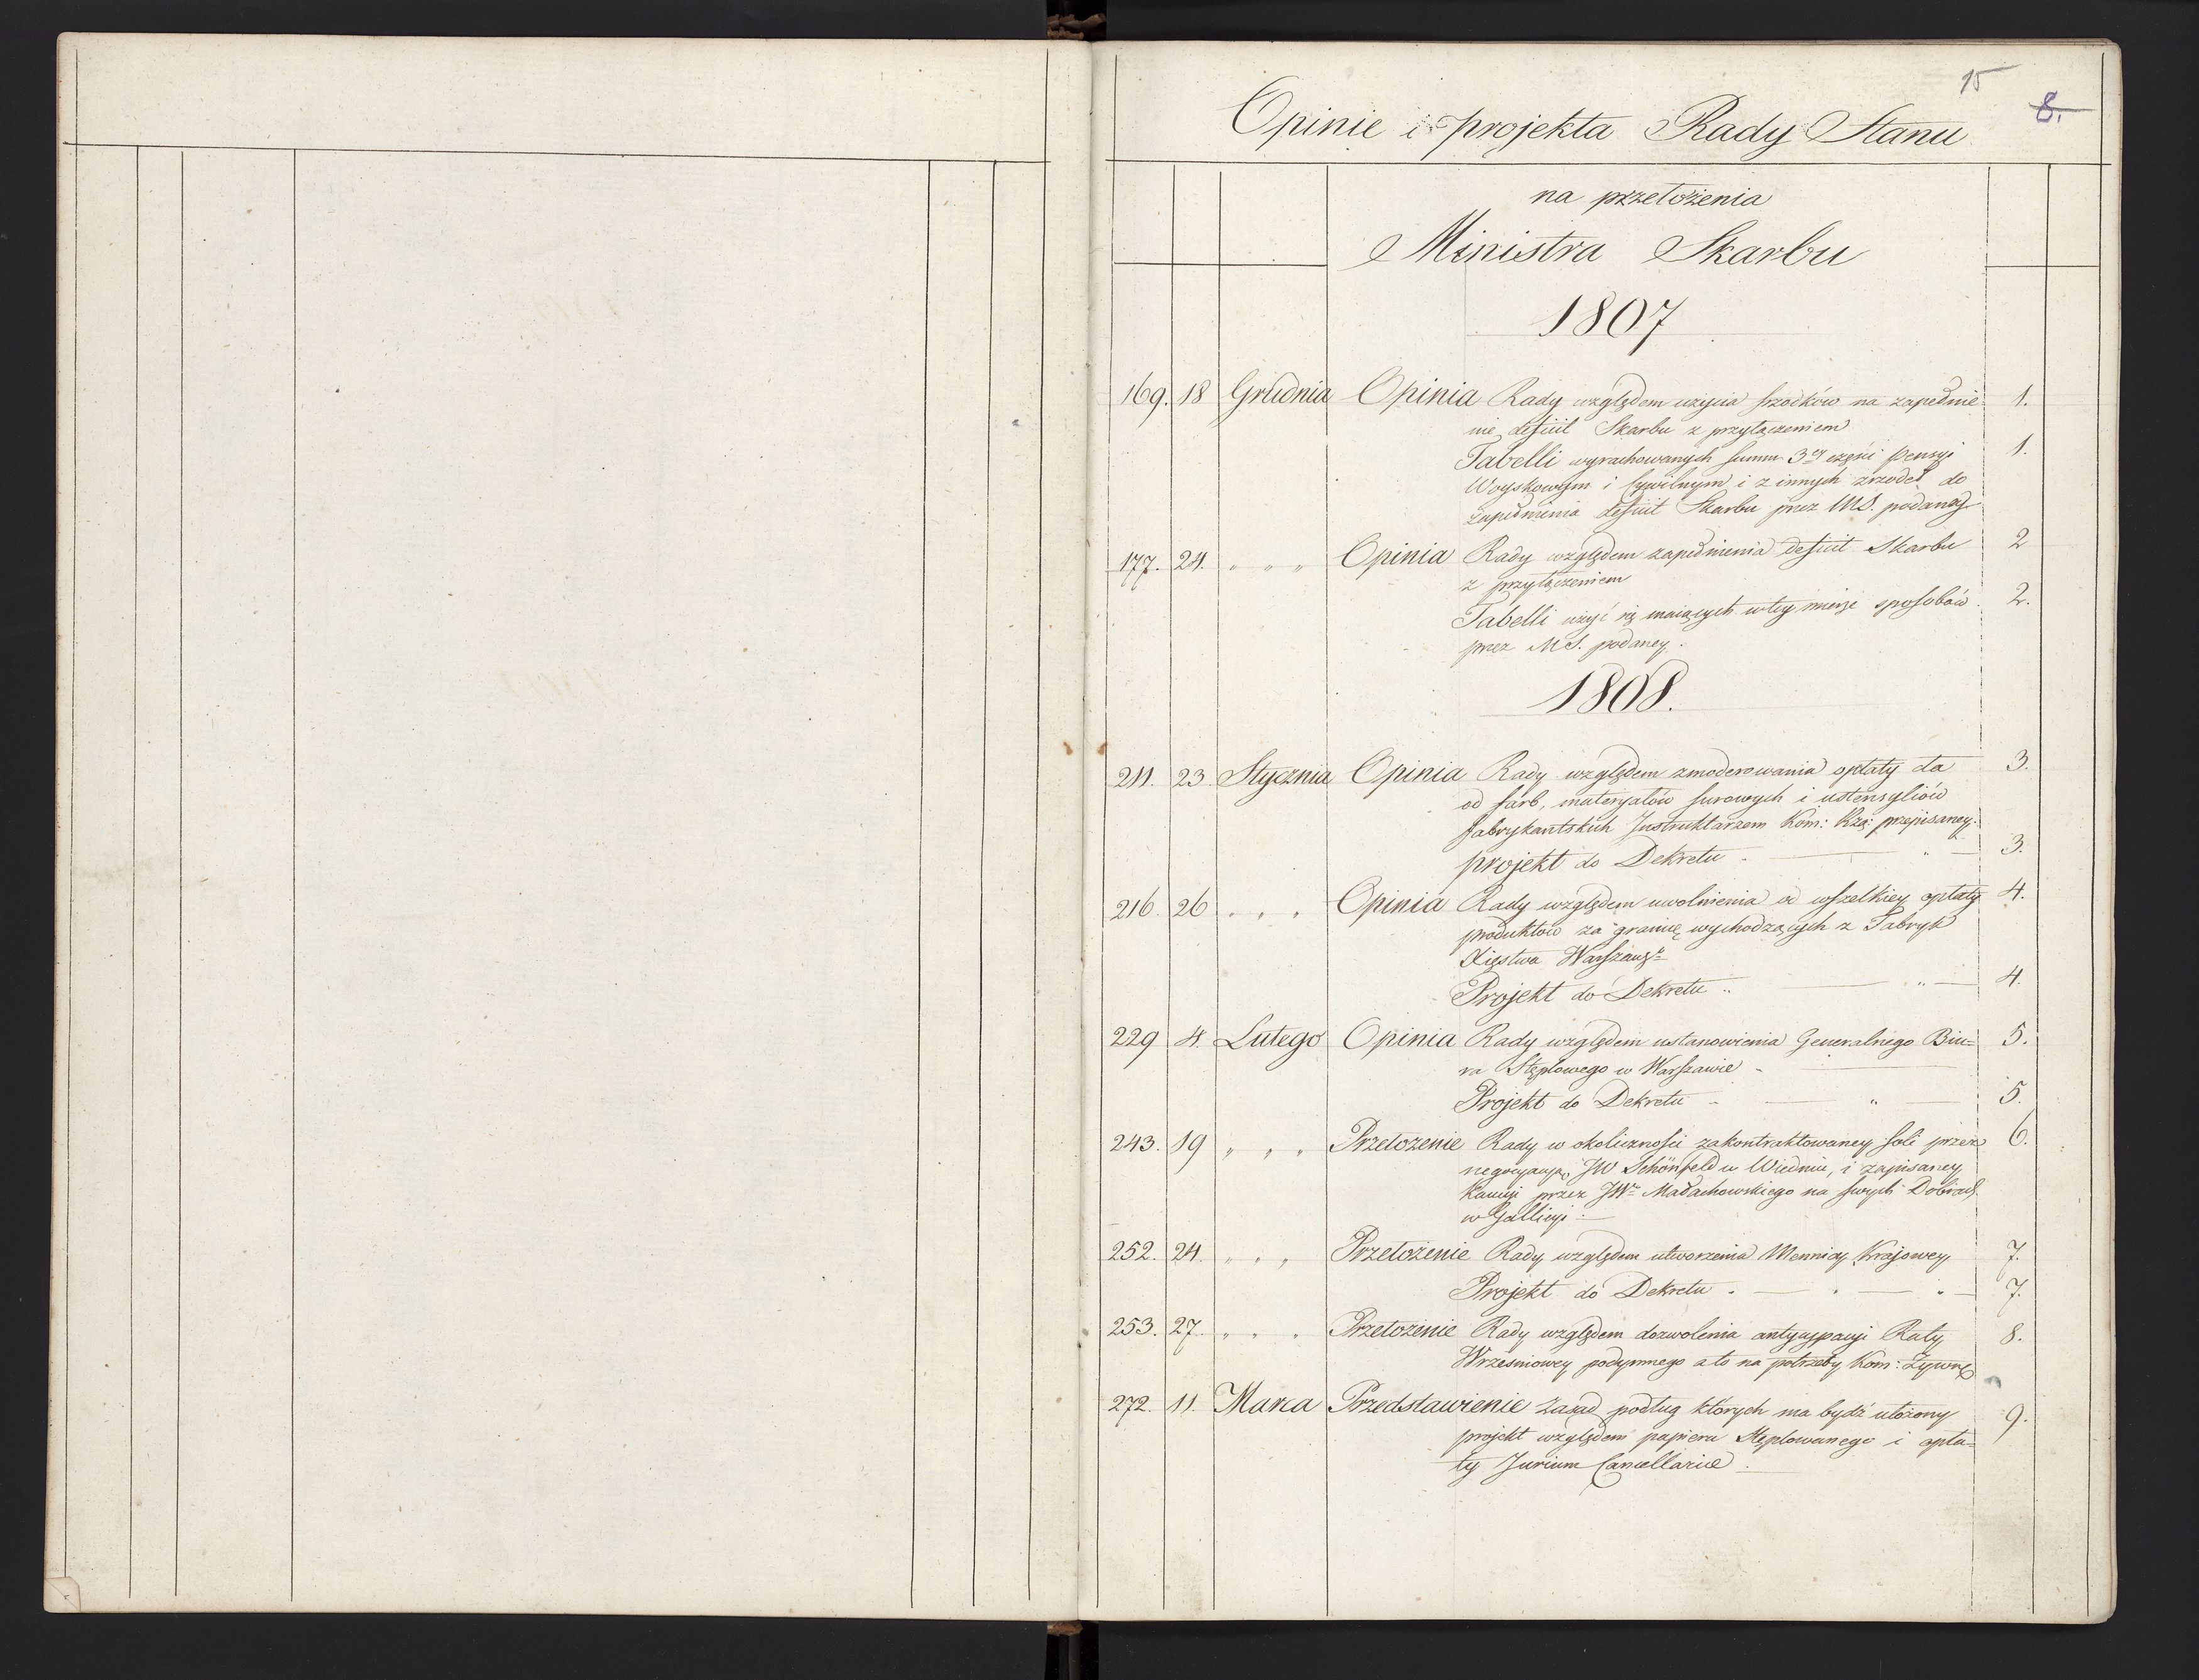 15
8.
Opinie i projekta Rady Stanu
na przełożenia
Ministra Skarbu
1807
169. 18 Grudnia Opinia Rady względem użycia srzodków na zapełnie= 1.
nie deficit Skarbu z przyłączeniem
Tabelli wyrachowanych summ 3ey części pensyi 1.
Woyskowym i Cywilnym i z innych zrzodeł do
zapełnienia deficit Skarbu przez MS. podaney
177. 24. " " " Opinia Rady względem zapełnienia deficit Skarbu 2
z przyłączeniem
Tabelli użyć się maiących w tey mierze sposobów 2.
przez MS. podaney.
1808.
211. 23 Stycznia Opinia Rady względem zmoderowania opłaty cła 3.
od farb, materyałów surowych i ustensyliów
fabrykantskich Instruktarzem Kom: Rzą: przepisaney.
projekt do Dekretu - " 3.
216. 26 " " " Opinia Rady względem uwolnienia od wszelkiey opłaty 4.
produktów za granicę wychodzących z Fabryk
Xięstwa Warszawsk
Projekt do Dekretu " " 4.
229 4. Lutego Opinia Rady względem ustanowienia Generalnego Biu= 5.
ra Stęplowego w Warszawie -
Projekt do Dekretu - " 5.
243. 19 " " " Przełożenie Rady w okoliczności zakontraktowaney soli przez 6.
negocyacyą JW Schönfeld w Wiedniu, i zapisaney
Kaucyi przez JWo Małachowskiego na swych Dobrach
w Gallicyi
252. 24. " " " Przełożenie Rady względem utworzenia Mennicy Krajowey 7.
Projekt do Dekretu - " " 7.
253. 27. " " " Przełożenie Rady względem dozwolenia antycypacyi Raty 8.
Wrześniowey podymnego a to na potrzeby Kom: Żywno
272. 11. Marca Przedstawienie zasad podług których ma bydź ułożony 9.
projekt względem papieru Stęplowanego i opła=
ty Jurium Cancellariæ